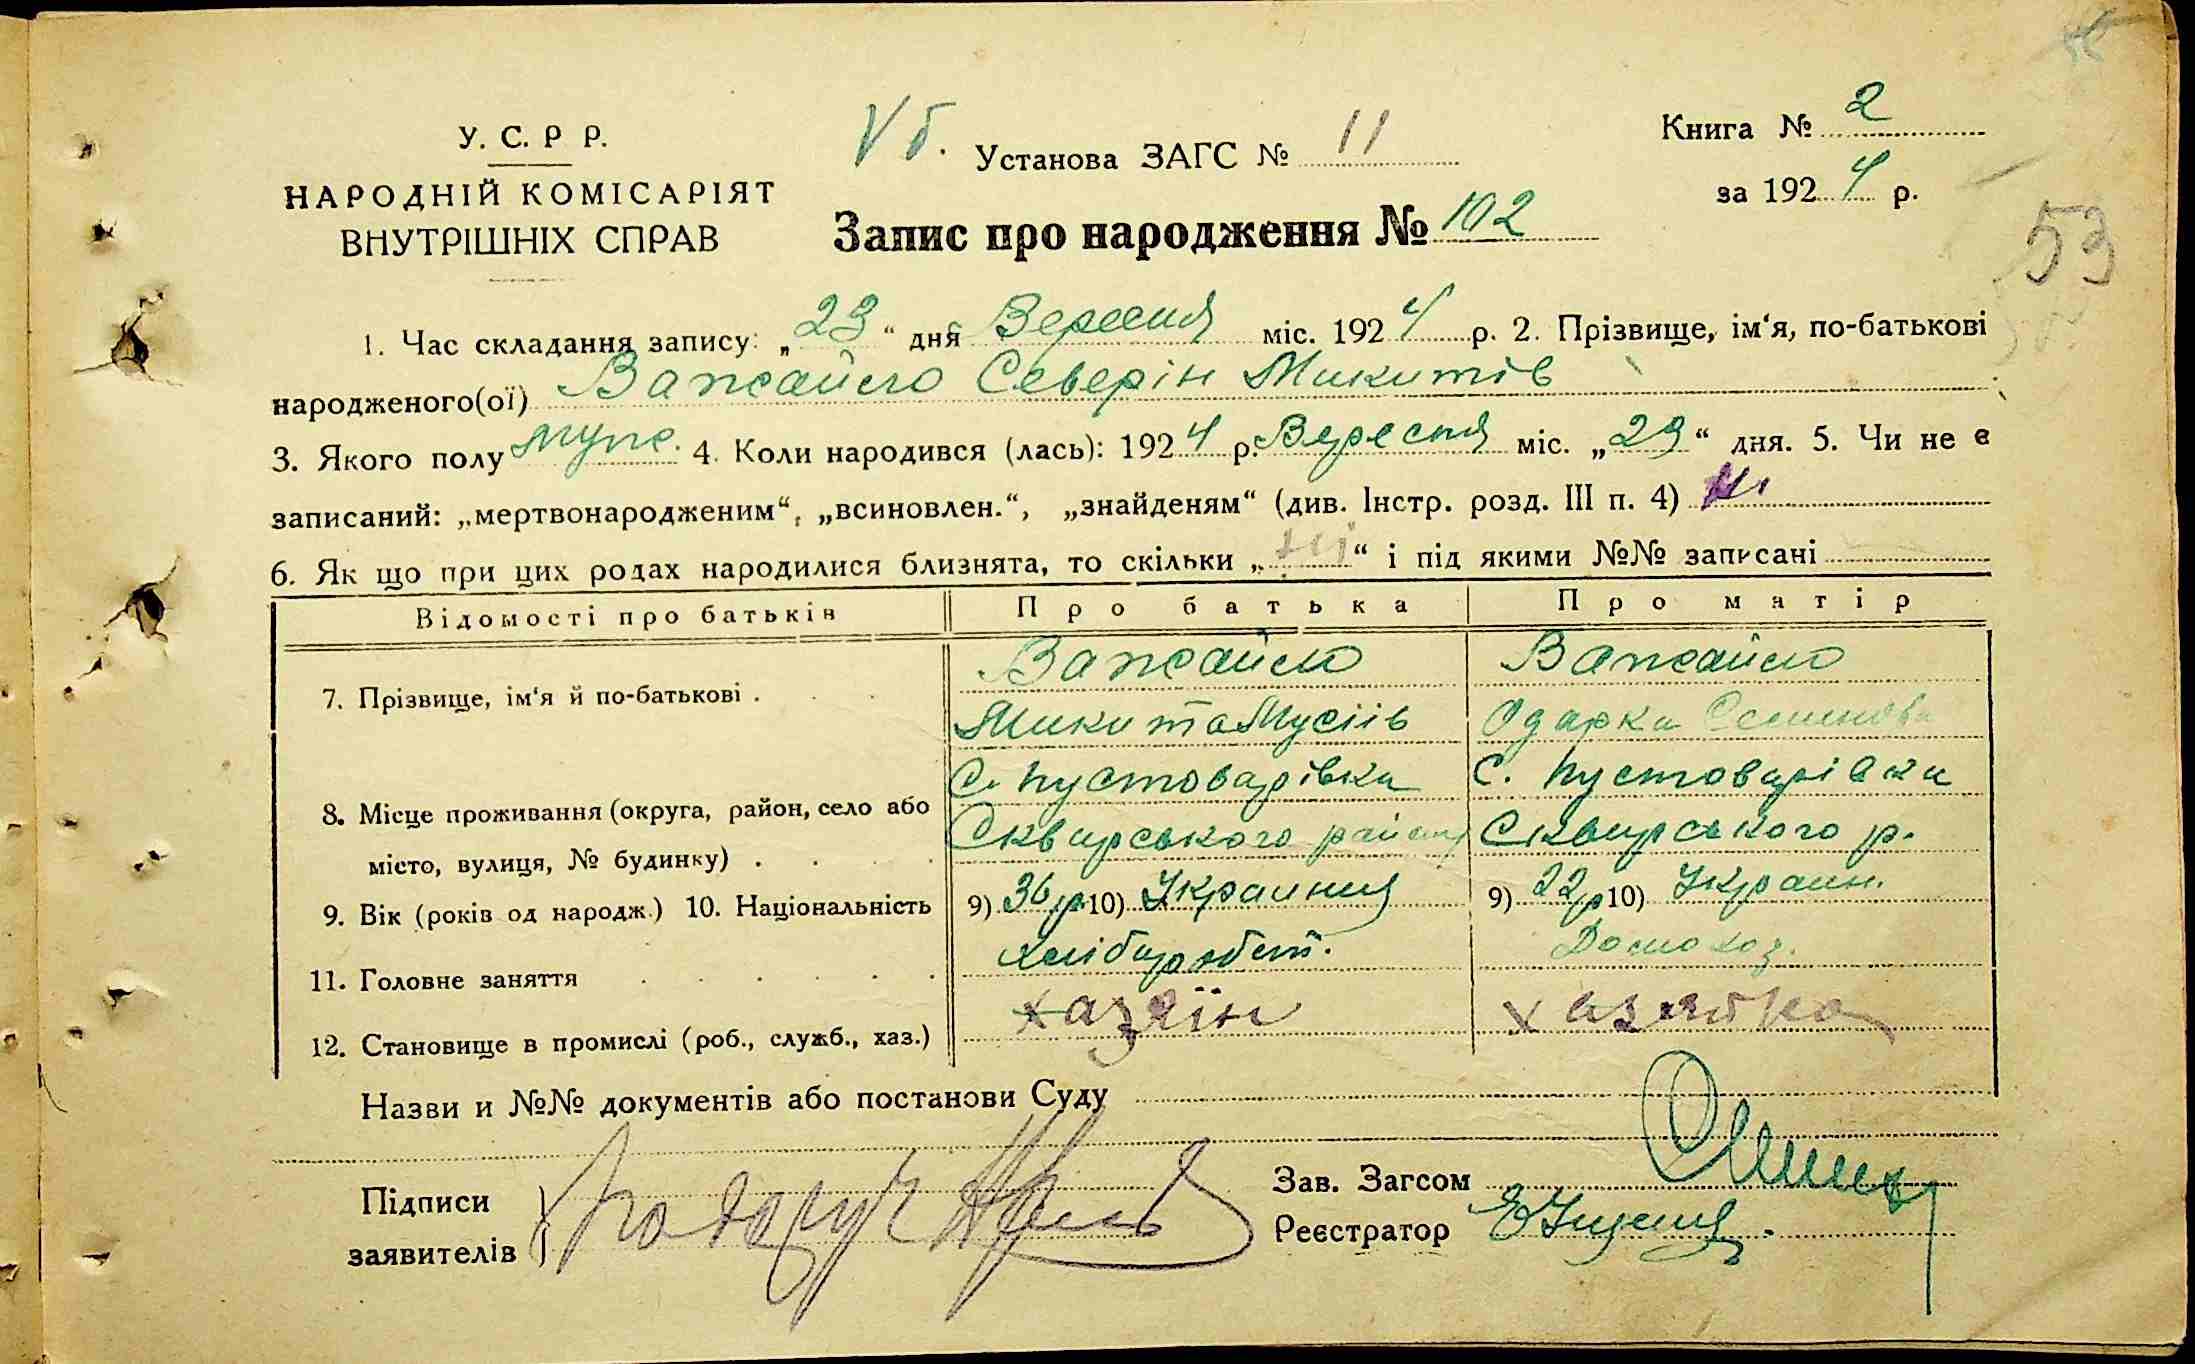 Книга № 2
У. С. Р Р.
Vб. Установа ЗАГС № 11
за 1924 р.
НАРОДНІЙ КОМІСАРІЯТ
ВНУТРІШНІХ СПРАВ
Запис про народження № 102
53
1. Час складання запису: „23“ дня Вересня міс. 1924 р. 2. Прізвище, ім‘я, по-батькові
народженого(ої) Важайло Северін Микитів
3. Якого полу муж. 4. Коли народився (лась): 1924 р. Вересня міс. „23“ дня. 5. Чи не є
записаний: „мертвонародженим“, „всиновлен.“, „знайденям“ (див. Інстр. розд. III п. 4) Ні
6. Як що при цих родах народилися близнята, то скільки „ні“ і під якими №№ записані
Відомості про батьків Про батька Про матір
Важайло Важайло
7. Прізвище, ім‘я й по-батькові .
Микита Мусіів Одарка
С. Пустоварівка С. Пустоварівка
8. Місце проживання (округа, район, село або
Сквирського району Сквирського р.
місто, вулиця, № будинку) .
9. Вік (років од народж.) 10. Національність 9) 36 р 10) Украиния 9) 22 р 10) Украин.
хлібороб Домохоз.
11. Головне заняття
хазяїн хазяйка
12. Становище в промислі (роб., служб., хаз.)
Назви и №№ документів або постанови Суду
Підписи
заявителів
Зав. Загсом
Реєстратор